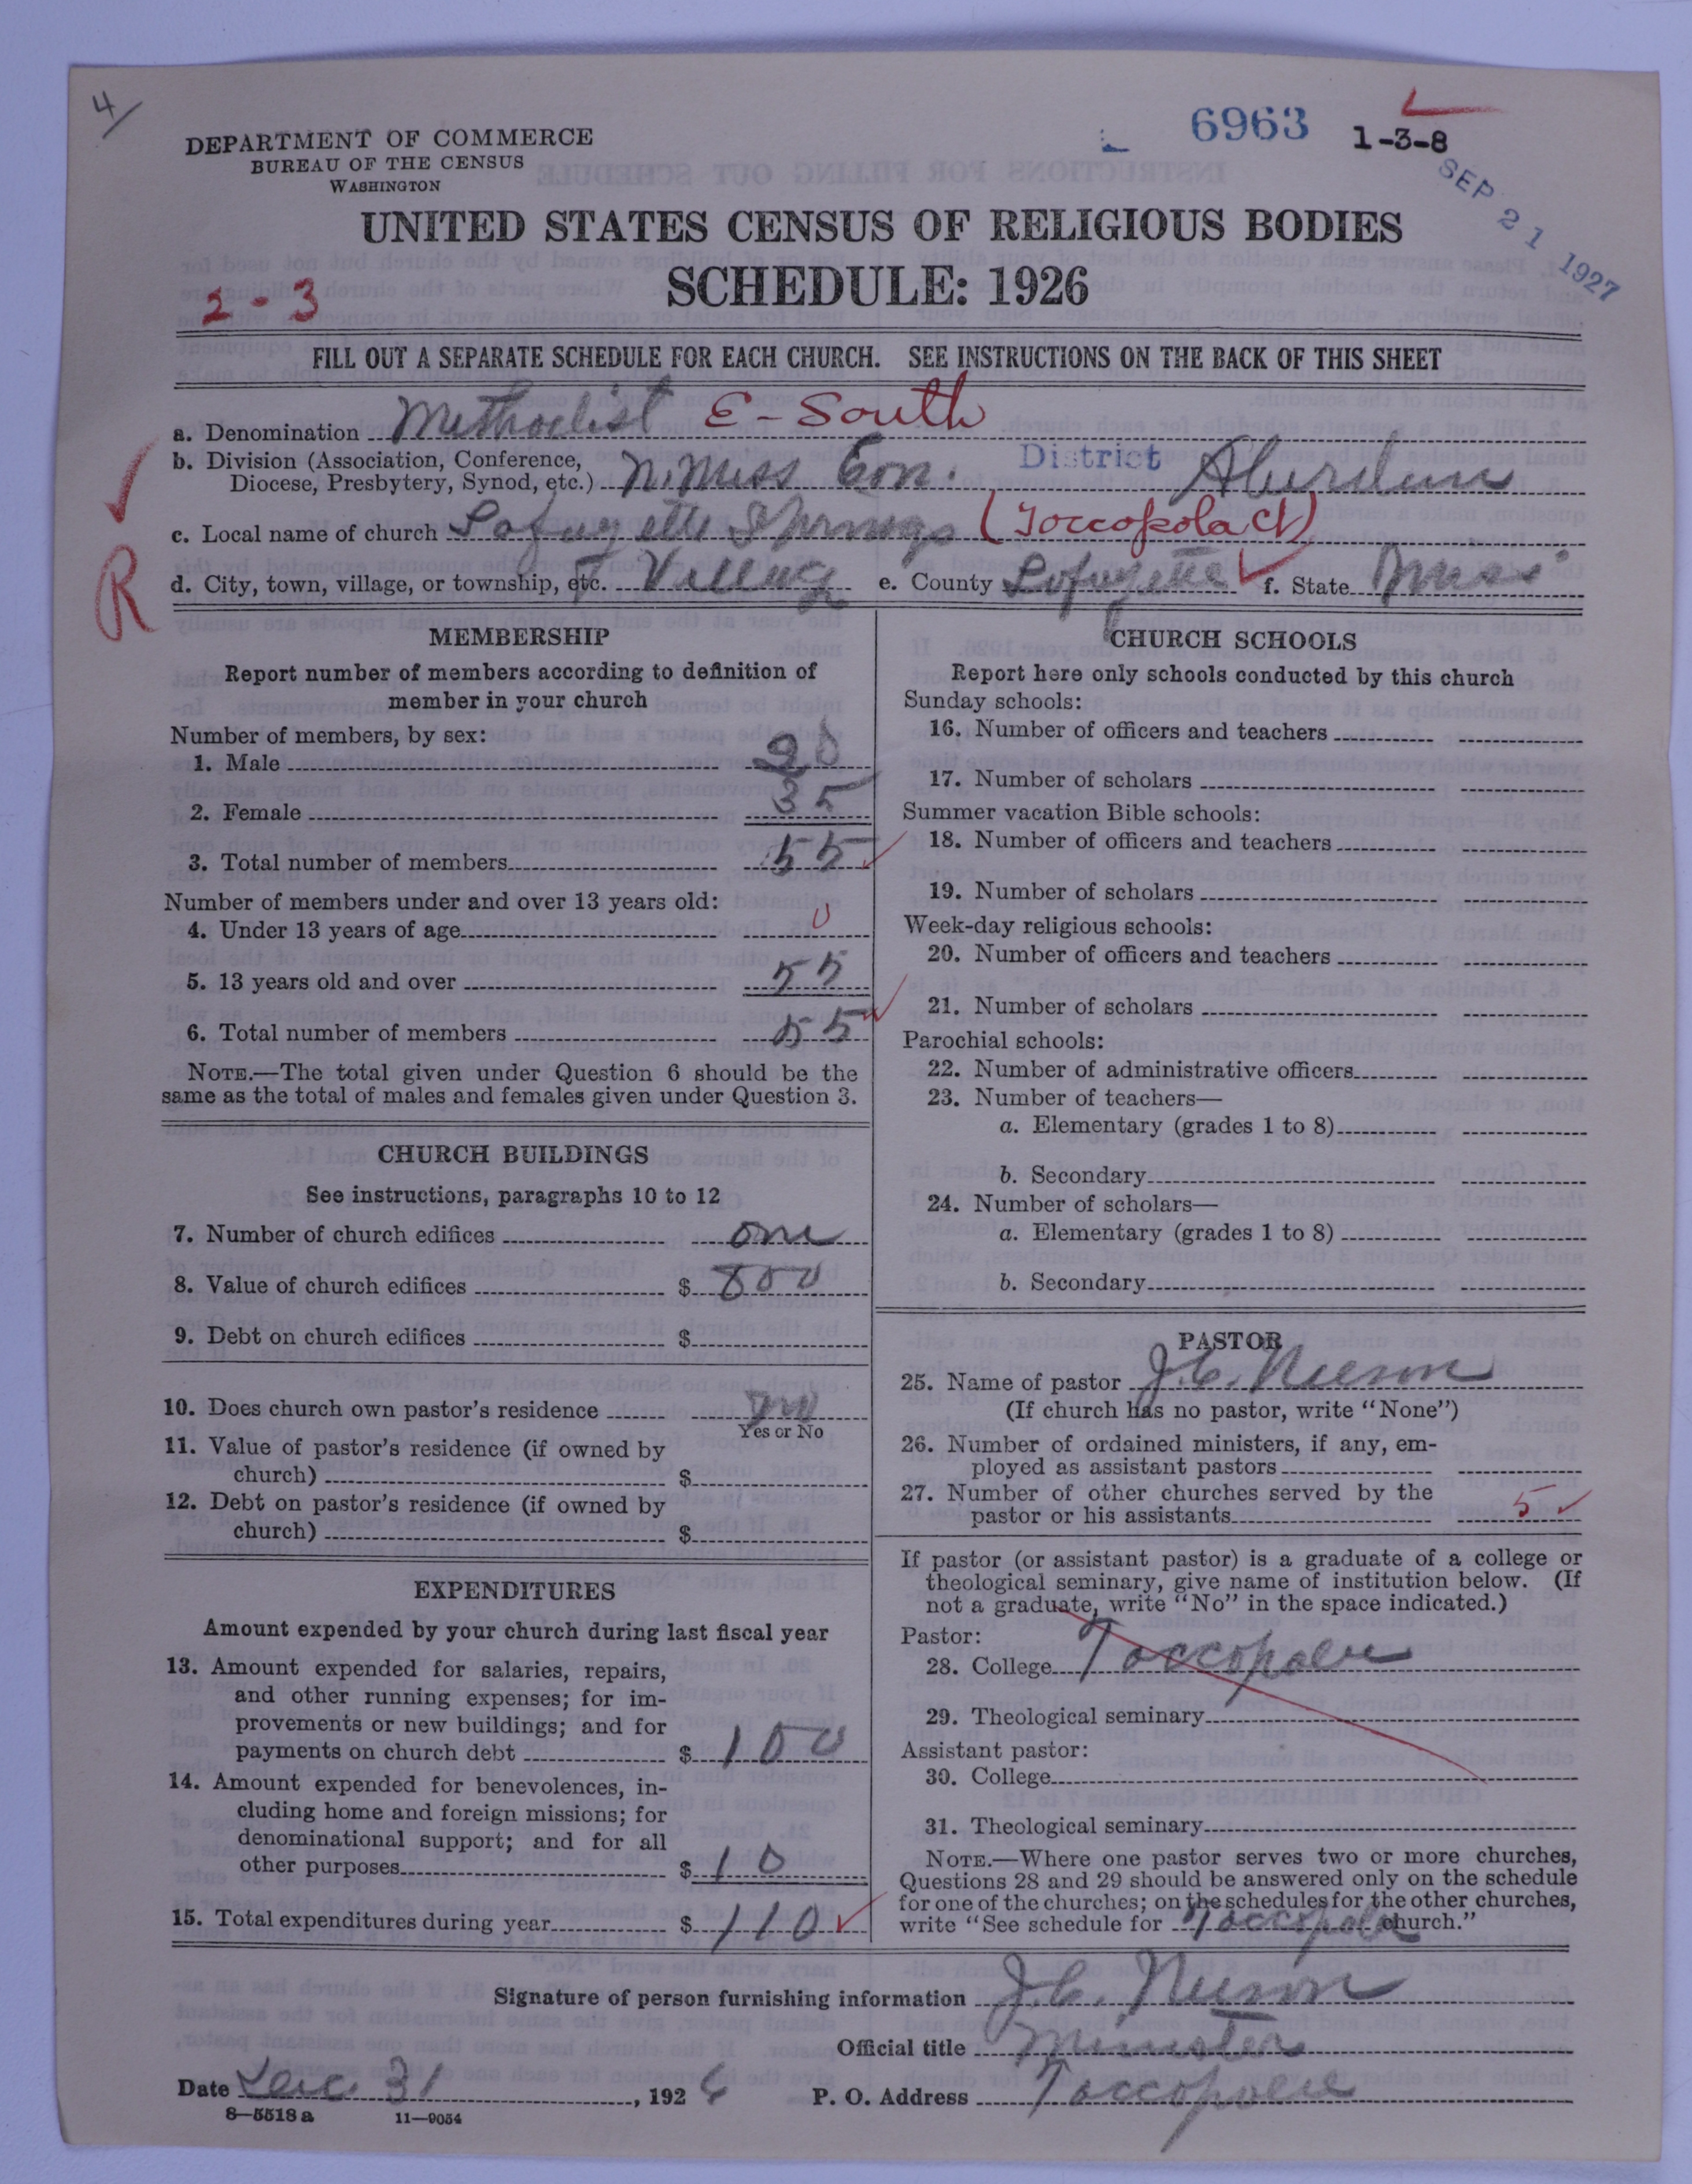 4/
6963 1-3-8
SEP 21 1927
DEPARTMENT OF COMMERCE
BUREAU OF THE CENSUS
WASHINGTON
UNITED STATES CENSUS OF RELIGIOUS BODIES
SCHEDULE: 1926
2-3
FILL OUT A SEPARATE SCHEDULE FOR EACH CHURCH. SEE INSTRUCTIONS ON THE BACK OF THIS SHEET
a. Denomination Methodist E-South
b. Division (Association, Conference,
Diocese, Presbytery, Synod, etc.) N. Miss Con. District Aberdeen
c. Local name of church Lafayette Springs (Toccopola Ct)
R
d. City, town, village, or township, etc. Village e. County Lafayette f. State Miss
MEMBERSHIP
Report number of members according to definition of
member in your church
Number of members, by sex:
1. Male 20
2. Female 35
3. Total number of members 55
Number of members under and over 13 years old:
4. Under 13 years of age 0
5. 13 years old and over 55
6. Total number of members 55
NOTE.—The total given under Question 6 should be the
same as the total of males and females given under Question 3.
CHURCH BUILDINGS
See instructions, paragraphs 10 to 12
7. Number of church edifices one
8. Value of church edifices $ 800
9. Debt on church edifices $
10. Does church own pastor's residence no
Yes or No
11. Value of pastor's residence (if owned by
church) $
12. Debt on pastor's residence (if owned by
church) $
EXPENDITURES
Amount expended by your church during last fiscal year
13. Amount expended for salaries, repairs,
and other running expenses; for im-
provements or new buildings; and for
payments on church debt $ 100
14. Amount expended for benevolences, in-
cluding home and foreign missions; for
denominational support; and for all
other purposes $ 10
15. Total expenditures during year $ 110
CHURCH SCHOOLS
Report here only schools conducted by this church
Sunday schools:
16. Number of officers and teachers
17. Number of scholars
Summer vacation Bible schools:
18. Number of officers and teachers
19. Number of scholars
Week-day religious schools:
20. Number of officers and teachers
21. Number of scholars
Parochial schools:
22. Number of administrative officers
23. Number of teachers—
a. Elementary (grades 1 to 8)
b. Secondary
24. Number of scholars—
a. Elementary (grades 1 to 8)
b. Secondary
PASTOR
25. Name of pastor J.C.
(If church has no pastor, write "None")
26. Number of ordained ministers, if any, em-
ployed as assistant pastors
27. Number of other churches served by the
pastor or his assistants 5
If pastor (or assistant pastor) is a graduate of a college or
theological seminary, give name of institution below. (If
not a graduate, write "No" in the space indicated.)
Pastor:
28. College Toccopola
29. Theological seminary
Assistant pastor:
30. College
31. Theological seminary
NOTE.—Where one pastor serves two or more churches,
Questions 28 and 29 should be answered only on the schedule
for one of the churches; on the schedules for the other churches,
write "See schedule for Toccopola church."
Signature of person furnishing information J.C.
Official title Minister
Date Dec 31, 1926 P. O. Address Toccopola
8—5518a 11—9054